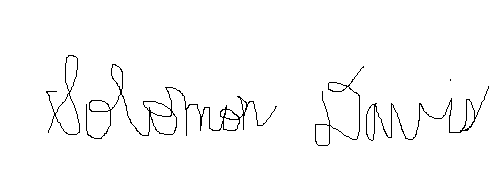 Solomon Davis